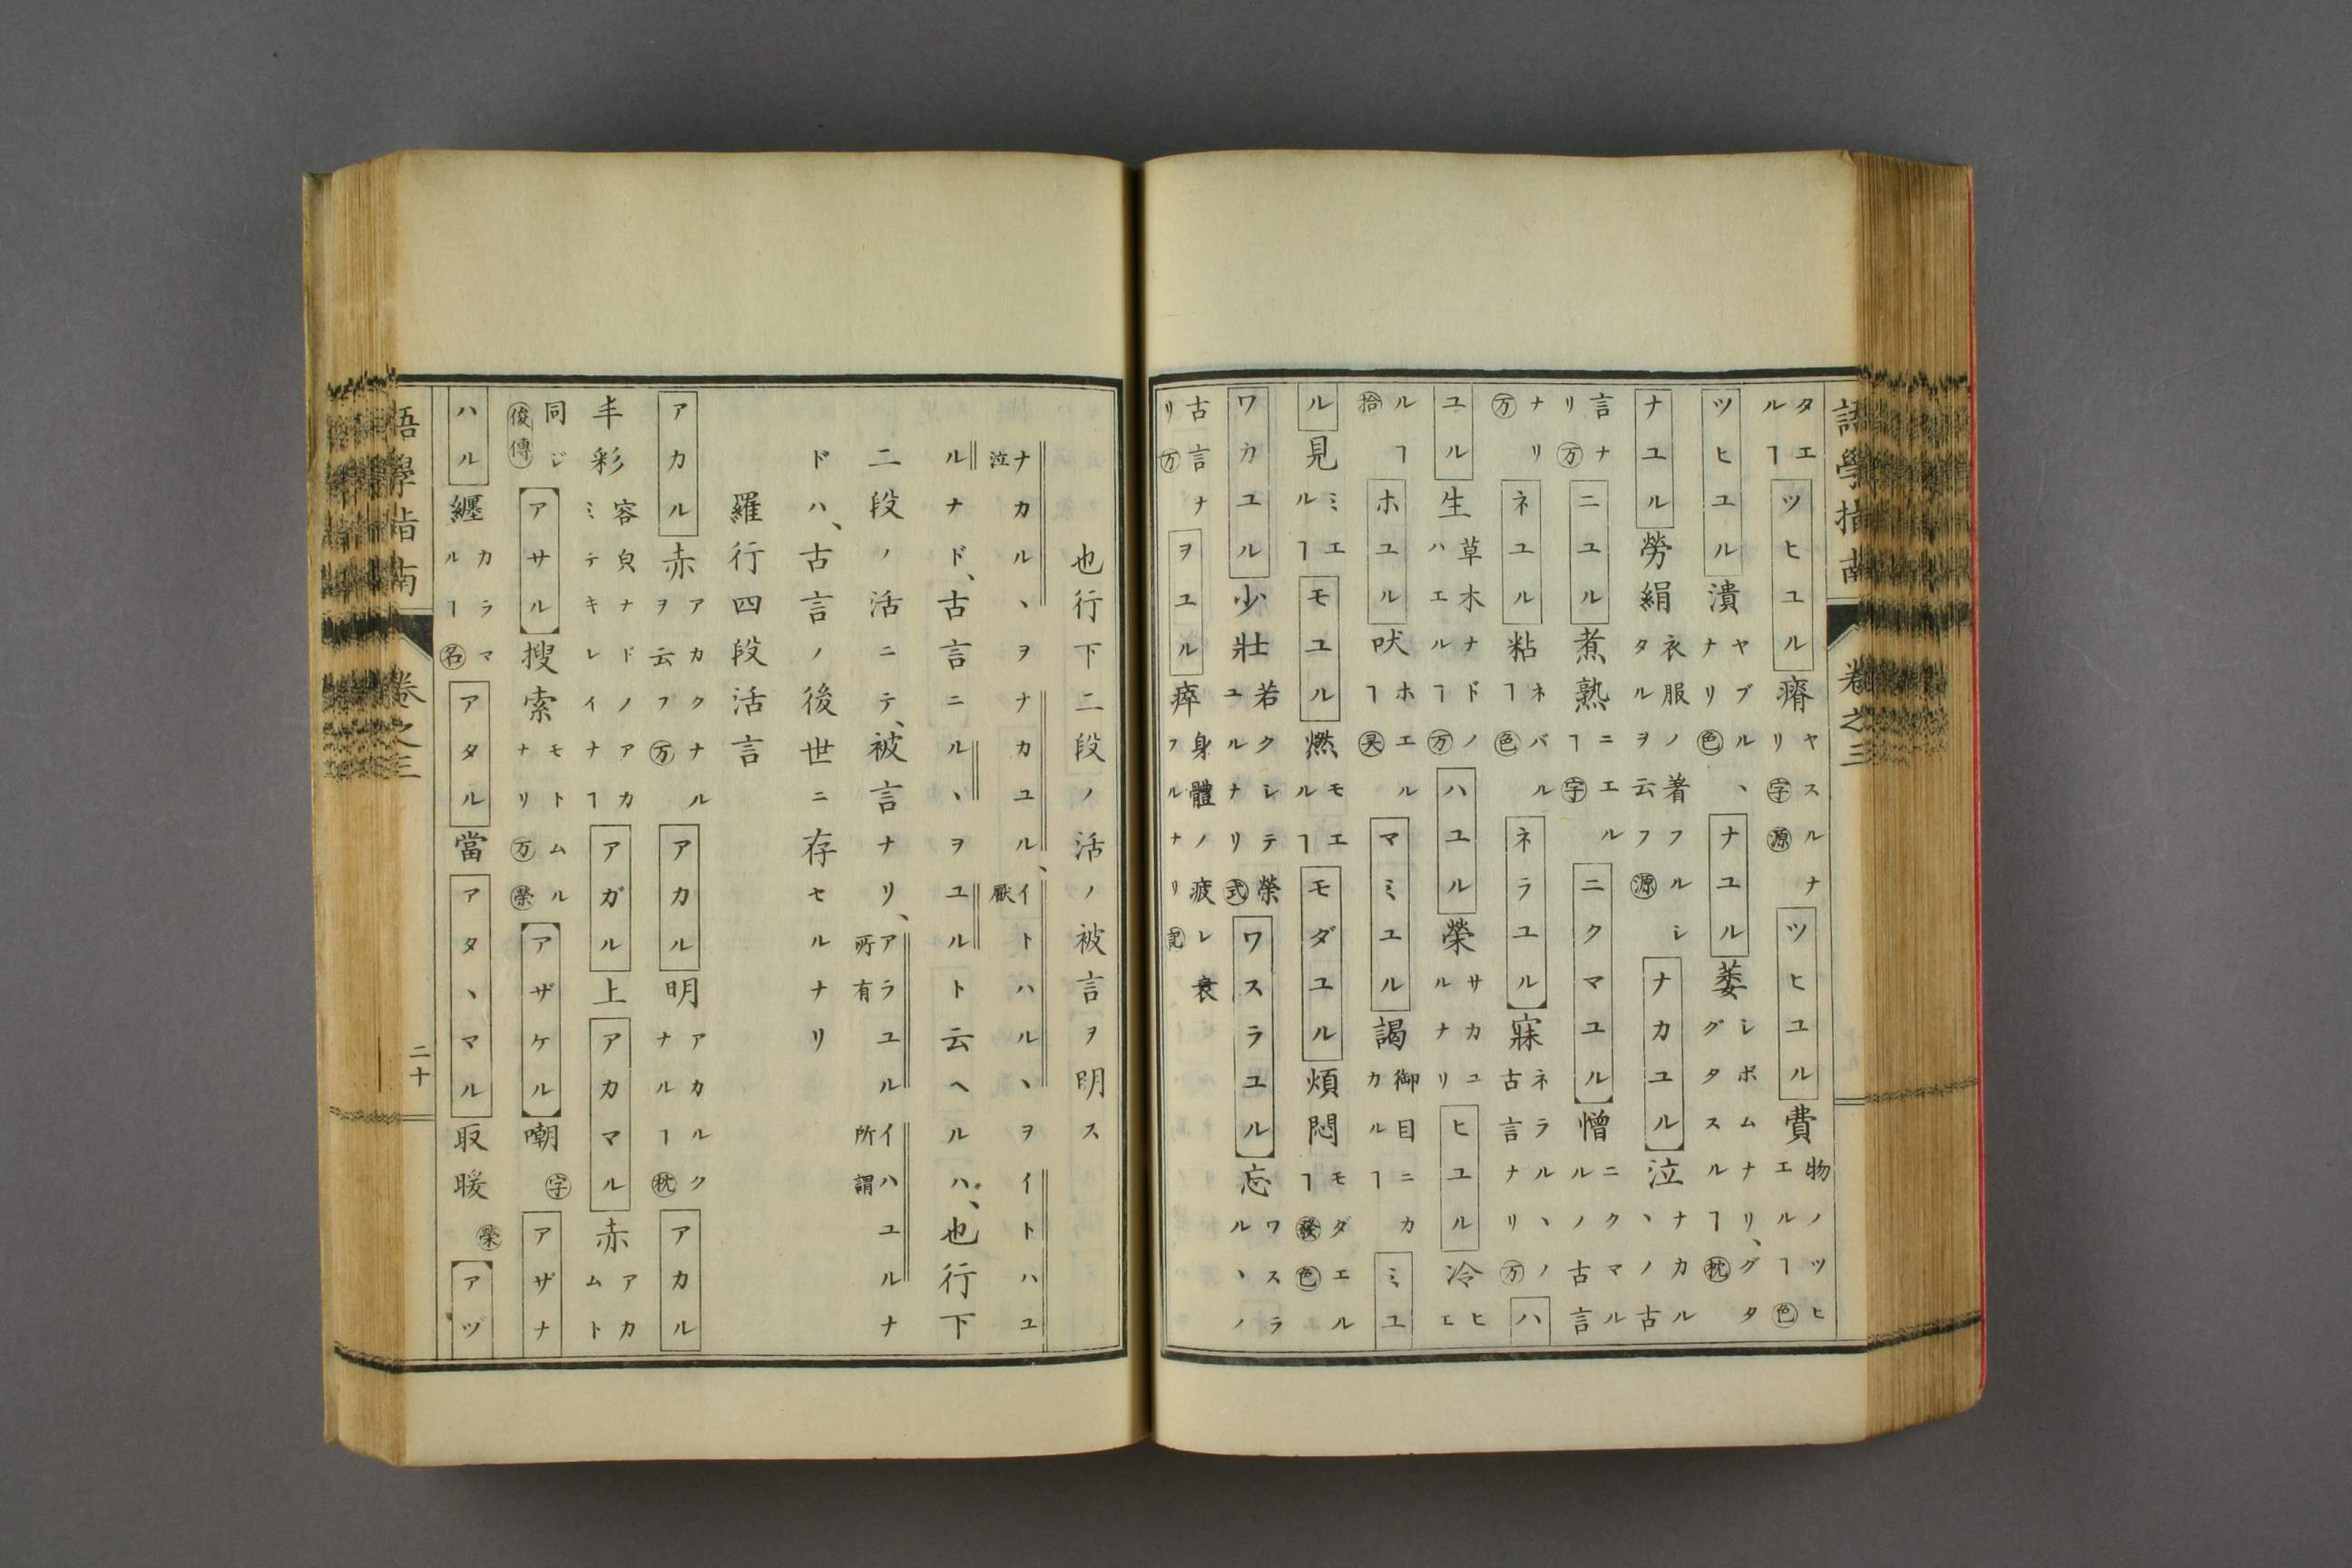 語學指南 卷之三
タエルヿ ツヒユル 瘠 ヤスルナリ 字 源 ツヒユル 費 物ノツヒエルヿ 色
ツヒユル 潰 ヤブルヽナリ 色 ナユル 萎 シボムナリ、グタグタスルヿ 枕
ナユル 勞絹 衣服ノ着フルシタルヲ云フ 源 ナカユル 泣 ナカルヽノ古
言ナリ 万 ニユル 煮熟 ニエルヿ 字 ニクマユル 憎 ニクマルルノ古言
ナリ 万 ネユル 粘 ネバルヿ 色 ネラユル 寐 ネラルヽノ古言ナリ 万 ハ
ユル 生 草木ナドノハエルヿ 万 ハユル 榮 サカユルナリ ヒユル 冷 ヒエ
ルヿ 拾 ホユル 吠 ホエルヿ マミユル 謁 御目ニカカルヿ ミユ
ル 見 ミエルヿ モユル 燃 モエルヿ モダユル 煩悶 モダエルヿ 發 色
ワカユル 少壯 若クシテ榮ユルナリ 式 ワスラユル 忘 ワスラルヽノ
古言ナリ 万 ヲユル 瘁 身體ノ疲レ衰フルナリ 記
也行下二段ノ活ノ被言ヲ明ス
ナカルヽヲナカユル、イトハルヽヲイトハユ 泣 厭
ルナド、古言ニルヽヲユルト云ヘルハ、也行下
二段ノ活ニテ、被言ナリ、アラユル 所有 イハユルナ 所謂
ドハ、古言ノ後世ニ存セルナリ
羅行四段活言
アカル 赤 アカクナルヲ云フ 万 アカル 明 アカルクナルヿ 枕 アカル
丰彩 容皃ナドノアカミテキレイナヿ アガル 上 アカマル 赤 アカムト
同ジ 俊傳 アサル 搜索 モトムルナリ 万 榮 アザケル 嘲 字 アザナ
ハル 纒 カラマルヿ 名 アタル 當 アタヽマル 取暖 榮 アヅ
語學指南 卷之三 二十